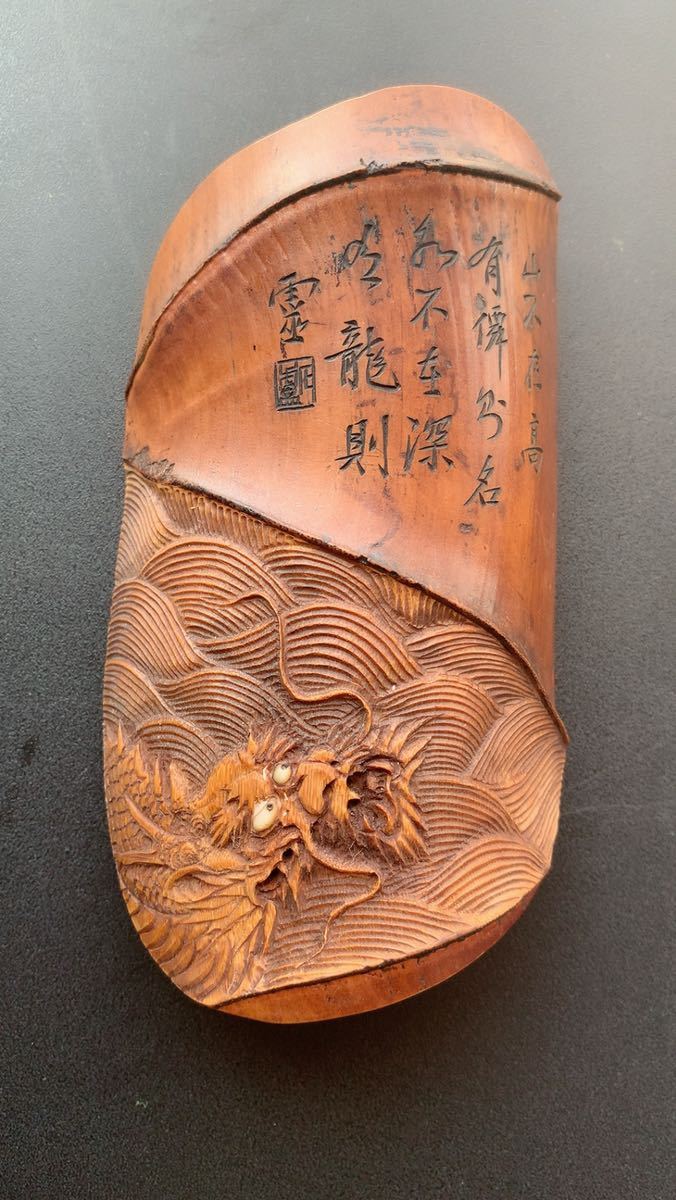 山不在高
有僊則名
水不在深
有龍則
靈